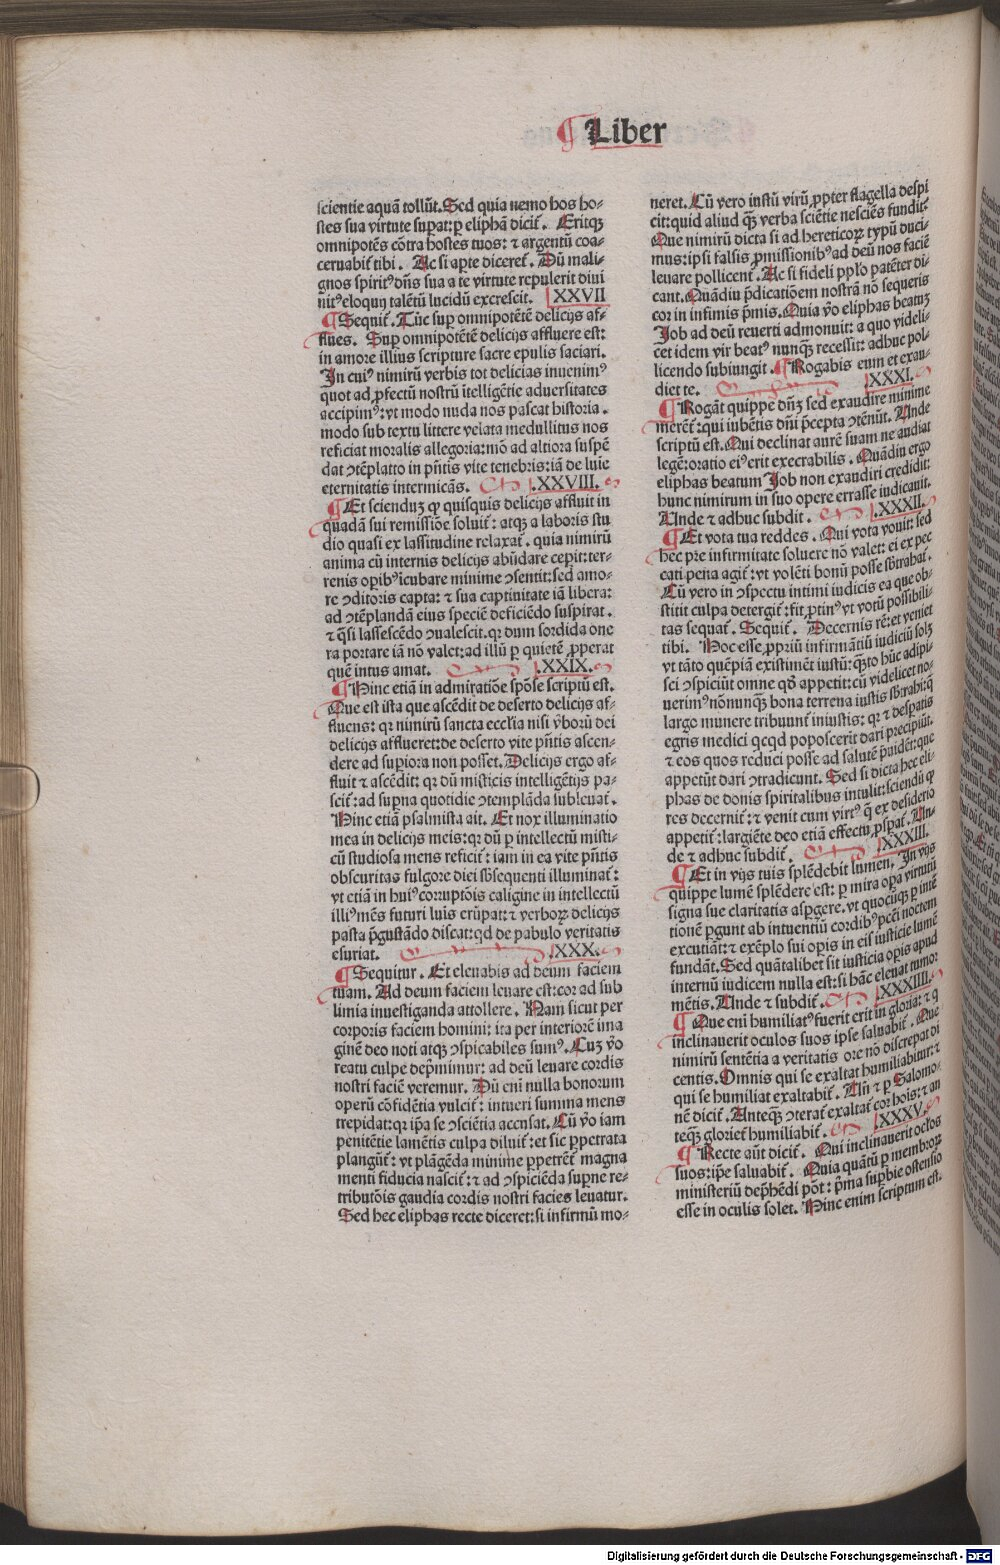 ¶ Liber
scientie aquā tollūt. Sed quia nemo hos ho-
stes sua virtute supat: p eliphā dicit᷑. Eritqꝫ
omnipotēs cōtra hostes tuos: ⁊ argentū coa-
ceruabit᷑ tibi. Ac si apte diceret᷑. Dū mali-
gnos spiritꝰ dn̄s sua a te virtute repulerit diui
nitꝰ eloquij talētū lucidū excrescit. XXVII
¶ Sequit᷑. Tūc sup omnipotētē delicijs af-
flues. Sup omnipotētē delicijs affluere est:
in amore illius scripture sacre epulis saciari.
In cuiꝰ nimirū verbis tot delicias inuenimꝰ
quot ad ꝓfectū nostrū ītelligētie aduersitates
accipimꝰ: vt modo nuda nos pascat historia.
modo sub textu littere velata medullitus nos
reficiat moralis allegoria: mō ad altiora suspē
dat ꝯtēplatio in pn̄tis vite tenebris: iā de luie
eternitatis intermicās. .XXVIII.
¶ Et scienduꝫ ꝙ quisquis delicijs affluit in
quadā sui remissiōe soluit᷑: atqꝫ a laboris stu
dio quasi ex lassitudine relaxat᷑. quia nimirū
anima cū internis delicijs abūdare cepit: ter-
renis opibꝰ īcubare minime ꝯsentit: sed amo-
re ꝯditoris capta: ⁊ sua captiuitate iā libera:
ad ꝯtēplandā eius speciē deficiēdo suspirat.
⁊ q̄si lassescēdo ꝯualescit. qꝛ dum sordida one
ra portare iā nō valet: ad illū p quietē ꝓperat
quē intus amat. .XXIX.
¶ Hinc etiā in admiratiōe spōse scriptū est.
Que est ista que ascēdit de deserto delicijs af-
fluens: qꝛ nimirū sancta eccl'ia nisi v̓borū dei
delicijs afflueret: de deserto vite pn̄tis ascen-
dere ad supiora non posset. Delicijs ergo af-
fluit ⁊ ascēdit: qꝛ dū misticis intelligētijs pa-
scit᷑: ad supna quotidie ꝯtemplāda subleuat᷑.
Hinc etiā psalmista ait. Et nox illuminatio
mea in delicijs meis: qꝛ dū p intellectū misti-
cū studiosa mens reficit᷑: iam in ea vite pn̄tis
obscuritas fulgore diei sb̓sequenti illuminat᷑:
vt etiā in huiꝰ corruptōis caligine in intellectū
illiꝰ mēs futuri luis erūpat: ⁊ verborꝫ delicijs
pasta p̄gustādo discat: qd de pabulo veritatis
esuriat. .XXX.
¶ Sequitur. Et eleuabis ad deum faciem
tuam. Ad deum faciem leuare est: cor ad sub
limia inuestiganda attollere. Nam sicut per
corporis faciem homini: ita per interiorē ima
ginē deo noti atqꝫ ꝯspicabiles sumꝰ. Cuꝫ v̓o
reatu culpe dep̄mimur: ad deū leuare cordis
nostri faciē veremur. Dū em̄ nulla bonorum
operū cōfidētia vulcit᷑: intueri summa mens
trepidat: qꝛ ip̄a se ꝯsciētia accusat. Cū v̓o iam
penitētie lamētis culpa diluit᷑: et sic ꝑpetrata
plangūt᷑: vt plāgēda minime ꝑpetrēt᷑ magna
menti fiducia nascit᷑: ⁊ ad ꝯspiciēda supne re-
tributōis gaudia cordis nostri facies leuatur.
Sed hec eliphas recte diceret: si infirmū mo-
neret. Cū vero iustū virū ꝓpter flagella despi
cit: quid aliud q̄ꝫ verba sciētie nesciēs fundit?
Que nimirū dicta si ad hereticorꝫ typū duci-
mus: ipsi falsis ꝓmissionibꝰ ad deū nos faciē
leuare pollicent᷑. Ac si fideli pplo patēter di-
cant. Quādiu p̄dicatiōem nostrā nō sequeris
cor in infimis p̄mis. Quia v̓o eliphas beatuꝫ
Job ad deū reuerti admonuit: a quo videli-
cet idem vir beatꝰ nunqꝫ recessit: adhuc pol-
licendo subiungit. ¶ Rogabis eum et exau-
diet te. .XXXI.
¶ Rogāt quippe dn̄ꝫ sed exaudire minime
merēt᷑: qui iubētis dn̄i p̄cepta ꝯtēnūt. Unde
scriptū est. Qui declinat aurē suam ne audiat
legē: oratio eiꝰ erit execrabilis. Quādiu ergo
eliphas beatum Job non exaudiri credidit:
hunc nimirum in suo opere errasse iudicauit.
Unde ⁊ adhuc subdit. .XXXII.
¶ Et vota tua reddes. Qui vota vouit: sed
hec pre infirmitate soluere nō valet: ei ex pec
cati pena agit᷑: vt volēti bonū posse sb̓trahat᷑.
Cū vero in ꝯspectu intimi iudicis ea que ob-
stitit culpa detergit᷑: fit ꝓtinꝰ vt votū possibili-
tas sequat᷑. Sequit᷑. Decernis rē: et veniet
tibi. Hoc esse ꝓpriū infirmātiū iudiciū solꝫ
vt tāto quēpiā existimēt iustū: q̄to hūc adipi-
sci ꝯspiciūt omne qd̓ appetit: cū videlicet no-
uerimꝰ nōnunqꝫ bona terrena iustis sb̓trahi: q̄
largo munere tribuunt᷑ iniustis: qꝛ ⁊ despatis
egris medici qcqd poposcerit dari precipiūt.
⁊ eos quos reduci posse ad salutē p̄uidēt: que
appetūt dari ꝯtradicunt. Sed si dicta hec eli-
phas de donis spiritalibus intulit: sciendū ꝙ
res decernit᷑: ⁊ venit cum virtꝰ q̄ ex desiderio
appetit᷑: largiēte deo etiā effectu ꝓspat᷑. Un-
de ⁊ adhuc subdit᷑. .XXXIII.
¶ Et in vijs tuis splēdebit lumen. In vijs
quippe lumē splēdere est: p mira opa virtutū
signa sue claritatis aspgere. vt quocūqꝫ p intē
tionē pgunt ab intuentiū cordibꝰ pcc̄i noctem
excutiāt: ⁊ exēplo sui opis in eis iusticie lumē
fundāt. Sed quātalibet sit iusticia opis apud
internū iudicem nulla est: si hāc eleuat tumor
mētis. Unde ⁊ subdit᷑. .XXXIIII.
¶ Que em̄ humiliatꝰ fuerit erit in gloria: ⁊ q
inclinauerit oculos suos ipse saluabit᷑. Que
nimirū sentētia a veritatis ore nō discrepat di
centis. Omnis qui se exaltat humiliabitur: ⁊
qui se humiliat exaltabit᷑. Un̄ ⁊ p Salomo-
nē dicit᷑. Anteqꝫ ꝯterat᷑ exaltat᷑ cor hois: ⁊ an
teqꝫ gloriet᷑ humiliabit᷑. .XXXV.
¶ Recte aūt dicit᷑. Qui inclinauerit oclos
suos: ip̄e saluabit᷑. Quia quātū p membrorꝫ
ministeriū dep̄hēdi pōt: p̄ma supbie ostensio
esse in oculis solet. Hinc enim scriptum est.
Digitalisierung gefördert durch die Deutsche Forschungsgemeinschaft - DFG